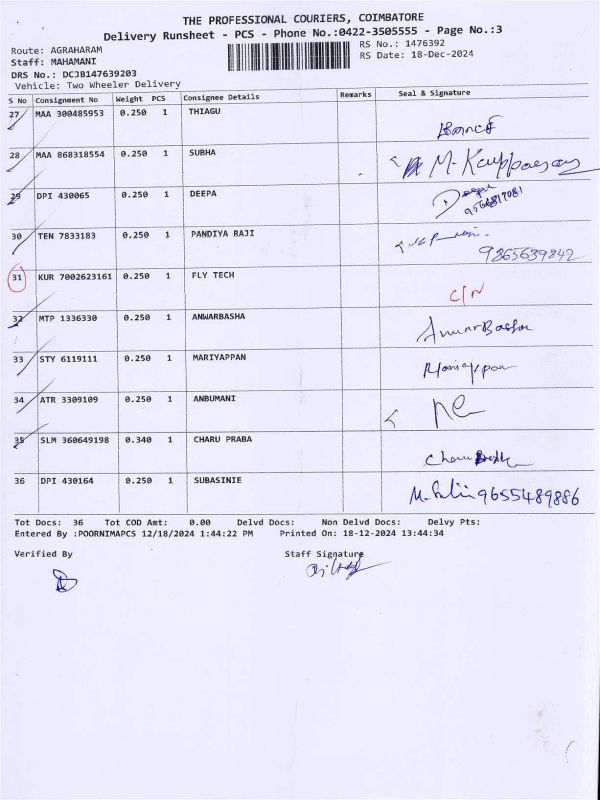 THE PROFESSIONAL COURIERS, COIMBATORE
Delivery Runsheet - PCS - Phone No.:0422-3505555 - Page No.:3
Route: AGRAHARAM RS No.: 1476392
Staff: MAHAMANI RS Date: 18-Dec-2024
DRS No.: DCJB147639203
Vehicle: Two Wheeler Delivery
S No Consignment No Weight PCS Consignee Details Remarks Seal & Signature
27 MAA 300485953 0.250 1 THIAGU
28 MAA 868318554 0.250 1 SUBHA M. Karuppasamy
29 DPI 430065 0.250 1 DEEPA Deepa
30 TEN 7833183 0.250 1 PANDIYA RAJI
9865639842
31 KUR 7002623161 0.250 1 FLY TECH
C/N
32 MTP 1336330 0.250 1 ANWARBASHA AnwarBasha
33 STY 6119111 0.250 1 MARIYAPPAN Mariyappan
34 ATR 3309109 0.250 1 ANBUMANI
35 SLM 360649198 0.340 1 CHARU PRABA
36 DPI 430164 0.250 1 SUBASINIE 9655489886
Tot Docs: 36 Tot COD Amt: 0.00 Delvd Docs: Non Delvd Docs: Delvy Pts:
Entered By :POORNIMAPCS 12/18/2024 1:44:22 PM Printed On: 18-12-2024 13:44:34
Verified By Staff Signature